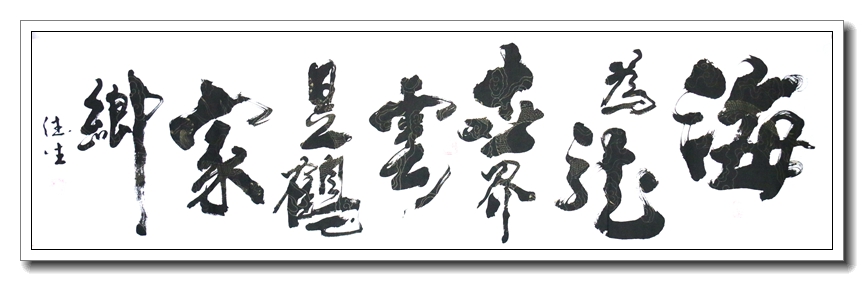 海
為龍
世界
雲
是鶴
家
鄉
佳生